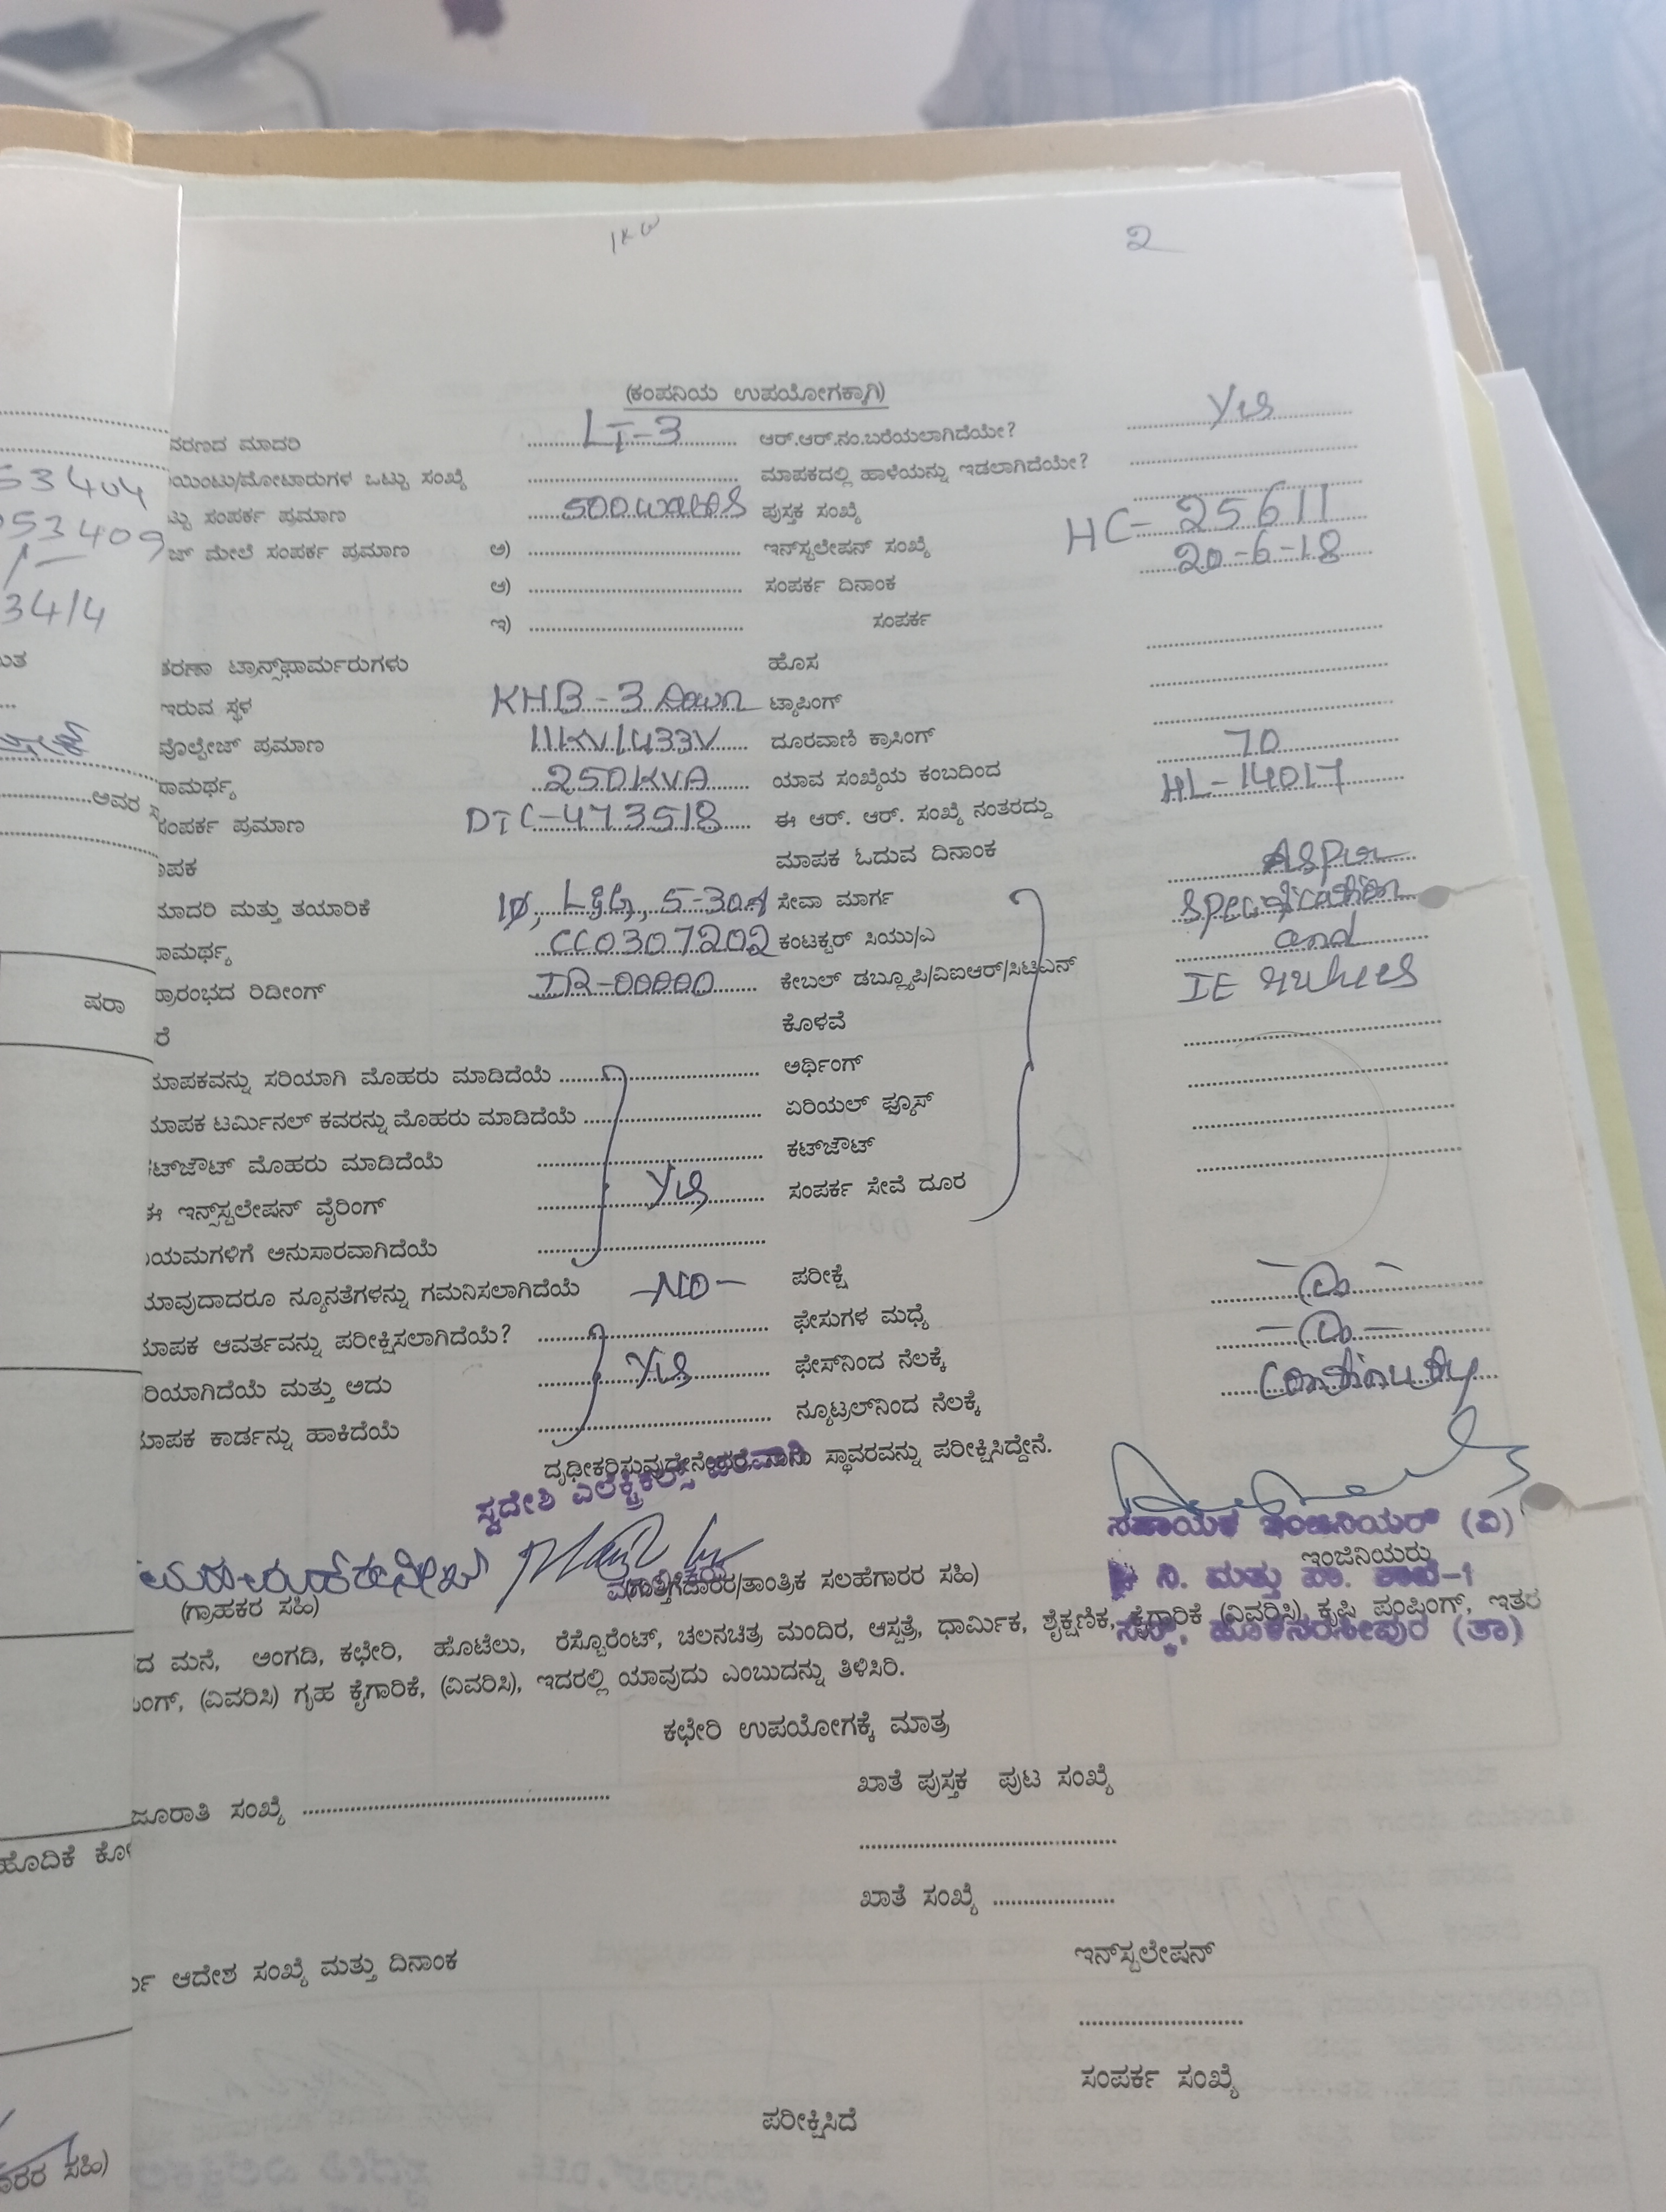 1KW
2
(ಕಂಪನಿಯ ಉಪಯೋಗಕ್ಕಾಗಿ)
ವರಣದ ಮಾದರಿ LT-3 ಆರ್.ಆರ್.ನಂ.ಬರೆಯಲಾಗಿದೆಯೇ? Yes
ಯಿಂಟು/ಮೋಟಾರುಗಳ ಒಟ್ಟು ಸಂಖ್ಯೆ ಮಾಪಕದಲ್ಲಿ ಹಾಳೆಯನ್ನು ಇಡಲಾಗಿದೆಯೇ?
ಟ್ಟು ಸಂಪರ್ಕ ಪ್ರಮಾಣ 500 watts ಪುಸ್ತಕ ಸಂಖ್ಯೆ
ಜ್ ಮೇಲೆ ಸಂಪರ್ಕ ಪ್ರಮಾಣ ಅ) ಇನ್‌ಸ್ಟಲೇಷನ್ ಸಂಖ್ಯೆ HC-25611
ಅ) ಸಂಪರ್ಕ ದಿನಾಂಕ 20-6-18
ಇ) ಸಂಪರ್ಕ
ತರಣಾ ಟ್ರಾನ್ಸ್‌ಫಾರ್ಮರುಗಳು ಹೊಸ
ಇರುವ ಸ್ಥಳ KHB-3 Down ಟ್ಯಾಪಿಂಗ್
ವೊಲ್ಟೇಜ್ ಪ್ರಮಾಣ 11KV/433V ದೂರವಾಣಿ ಕ್ರಾಸಿಂಗ್
ಸಾಮರ್ಥ್ಯ 250KVA ಯಾವ ಸಂಖ್ಯೆಯ ಕಂಬದಿಂದ 70
ಸಂಪರ್ಕ ಪ್ರಮಾಣ DTC-473518 ಈ ಆರ್. ಆರ್. ಸಂಖ್ಯೆ ನಂತರದ್ದು HL-14017
ಾಪಕ ಮಾಪಕ ಓದುವ ದಿನಾಂಕ
ಮಾದರಿ ಮತ್ತು ತಯಾರಿಕೆ 1Ø, L&G, 5-30A ಸೇವಾ ಮಾರ್ಗ As per
ಸಾಮರ್ಥ್ಯ CC0307202 ಕಂಟಕ್ಟರ್ ಸಿಯು/ಎ Specification
ಪ್ರಾರಂಭದ ರಿಡೀಂಗ್ IR-00000 ಕೇಬಲ್ ಡಬ್ಲ್ಯೂಪಿ/ವಿಐಆರ್/ಸಿಟಿಎನ್ and
ರೆ ಕೊಳವೆ IE rules
ಮಾಪಕವನ್ನು ಸರಿಯಾಗಿ ಮೊಹರು ಮಾಡಿದೆಯೆ ಅರ್ಥಿಂಗ್
ಮಾಪಕ ಟರ್ಮಿನಲ್ ಕವರನ್ನು ಮೊಹರು ಮಾಡಿದೆಯೆ ಏರಿಯಲ್ ಫ್ಯೂಸ್
ಟ್‌ಜೌಟ್ ಮೊಹರು ಮಾಡಿದೆಯೆ ಕಟ್‌ಜೌಟ್
ಈ ಇನ್ಸ್‌ಸ್ಟಲೇಷನ್ ವೈರಿಂಗ್ Yes ಸಂಪರ್ಕ ಸೇವೆ ದೂರ
ಯಮಗಳಿಗೆ ಅನುಸಾರವಾಗಿದೆಯೆ
ಯಾವುದಾದರೂ ನ್ಯೂನತೆಗಳನ್ನು ಗಮನಿಸಲಾಗಿದೆಯೆ -NO- ಪರೀಕ್ಷೆ
ಮಾಪಕ ಆವರ್ತವನ್ನು ಪರೀಕ್ಷಿಸಲಾಗಿದೆಯೆ? ಫೇಸುಗಳ ಮಧ್ಯೆ
ರಿಯಾಗಿದೆಯೆ ಮತ್ತು ಅದು Yes ಫೇಸ್‌ನಿಂದ ನೆಲಕ್ಕೆ
ಮಾಪಕ ಕಾರ್ಡನ್ನು ಹಾಕಿದೆಯೆ ನ್ಯೂಟ್ರಲ್‌ನಿಂದ ನೆಲಕ್ಕೆ Continuity
ದೃಢೀಕರಿಸುವುದೇನೇಂದರೆ ನಾನು ಸ್ಥಾವರವನ್ನು ಪರೀಕ್ಷಿಸಿದ್ದೇನೆ.
ಸ್ವದೇಶಿ ಎಲೆಕ್ಟ್ರಿಕಲ್ಸ್
ಸಹಾಯಕ ಇಂಜಿನಿಯರ್ (ವಿ)
ಇಂಜಿನಿಯರು
ನಿ. ಮತ್ತು ಪಾ. ಶಾಖೆ-1
(ಗ್ರಾಹಕರ ಸಹಿ) (ಗುತ್ತಿಗೆದಾರರ/ತಾಂತ್ರಿಕ ಸಲಹೆಗಾರರ ಸಹಿ)
ಹೊಳೆನರಸೀಪುರ (ತಾ)
ದ ಮನೆ, ಅಂಗಡಿ, ಕಛೇರಿ, ಹೊಟೆಲು, ರೆಸ್ಟೊರೆಂಟ್, ಚಲನಚಿತ್ರ ಮಂದಿರ, ಆಸ್ಪತ್ರೆ, ಧಾರ್ಮಿಕ, ಶೈಕ್ಷಣಿಕ, ಕೈಗಾರಿಕೆ (ವಿವರಿಸಿ), ಕೃಷಿ ಪಂಪಿಂಗ್, ಇತರ
ಂಗ್, (ವಿವರಿಸಿ) ಗೃಹ ಕೈಗಾರಿಕೆ, (ವಿವರಿಸಿ), ಇದರಲ್ಲಿ ಯಾವುದು ಎಂಬುದನ್ನು ತಿಳಿಸಿರಿ.
ಕಛೇರಿ ಉಪಯೋಗಕ್ಕೆ ಮಾತ್ರ
ಜೂರಾತಿ ಸಂಖ್ಯೆ ಖಾತೆ ಪುಸ್ತಕ ಪುಟ ಸಂಖ್ಯೆ
ಖಾತೆ ಸಂಖ್ಯೆ
ಆದೇಶ ಸಂಖ್ಯೆ ಮತ್ತು ದಿನಾಂಕ ಇನ್‌ಸ್ಟಲೇಷನ್
ಸಂಪರ್ಕ ಸಂಖ್ಯೆ
ಪರೀಕ್ಷಿಸಿದೆ
53404
53409
34/4
ಅವರ
ಷರಾ
ಹೊದಿಕೆ
ಸಹಿ)